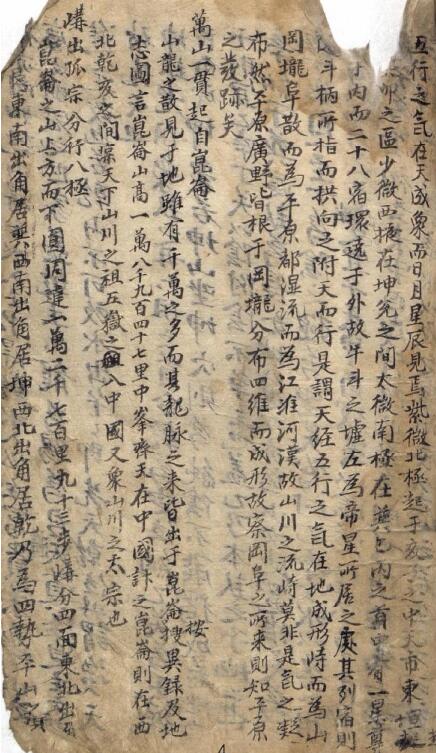 五行之氣在天成象而日月星辰見焉紫微北極起于之中天市東垣
卯之區少微西掖在坤兌之間太微南極在巽巳丙之首中有一星尊
于內而二十八宿環遶于外故牛斗之墟左為帝星所居之處其列宿則
斗柄所指而拱向之附天而行是謂天經五行之氣在地成形峙而為山
岡壠阜散而為平原都濕流而為江淮河漢故山川之流峙莫非是氣之凝
布然平原廣野皆根于岡壠分布四維而成形故察岡阜之所來則知平原
之發跡矣
萬山一貫起自崑崙 按
山龍之發見于地雖有千萬之多而其龍脉之來皆出于崑崙搜異録及地
志圖言崑崙山高一萬八千九百四十七里中峯齊天在中國計之崑崙則在西
北乾亥之間深天下山川之祖五嶽之祖入中國又衆山川之太宗也
嶙出孤宗分行八極
崑崙之山上方而下圓周建一萬二千七百里九十三步嶙分四面東北出
東南出角居巽西南出角居坤西北出角居乾乃為四勢平山